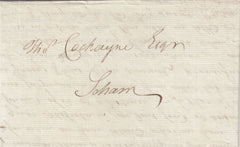 Thos. Cockayne Esqr
Soham